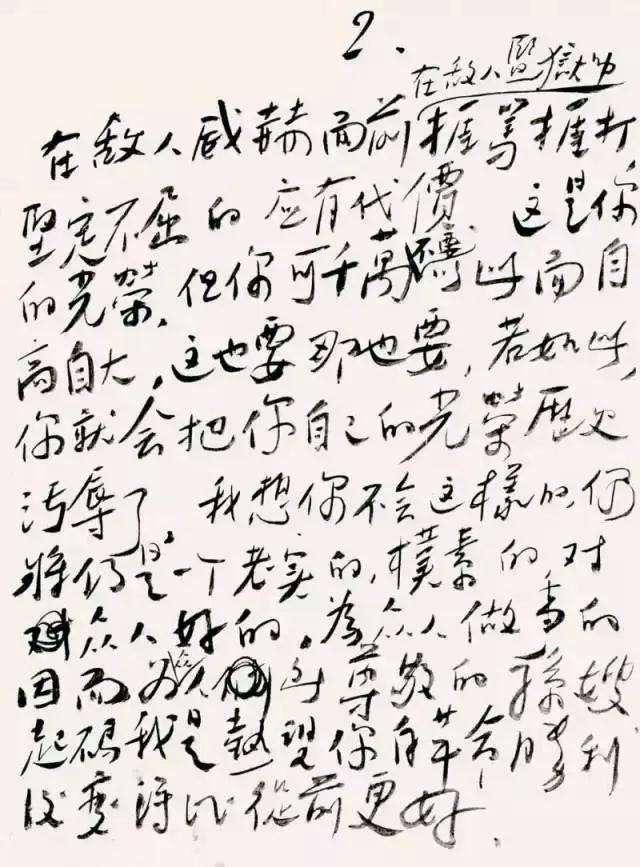 2.
在敌人監獄中
在敌人威赫面前捱骂捱打
堅定不屈的应有代價 这是你
的光榮，但你可千萬 此而自
高自大，这也要那也要，若如此，
你就会把你自己的光榮歷史
污辱了。我想你不会这樣的，仍
将仍是一个老实的，樸素的对
众人好的，為众人做事的
因而 众人 所尊敬的孫嫂
起码我是熱望你自革命勝利
後变得比從前更好．